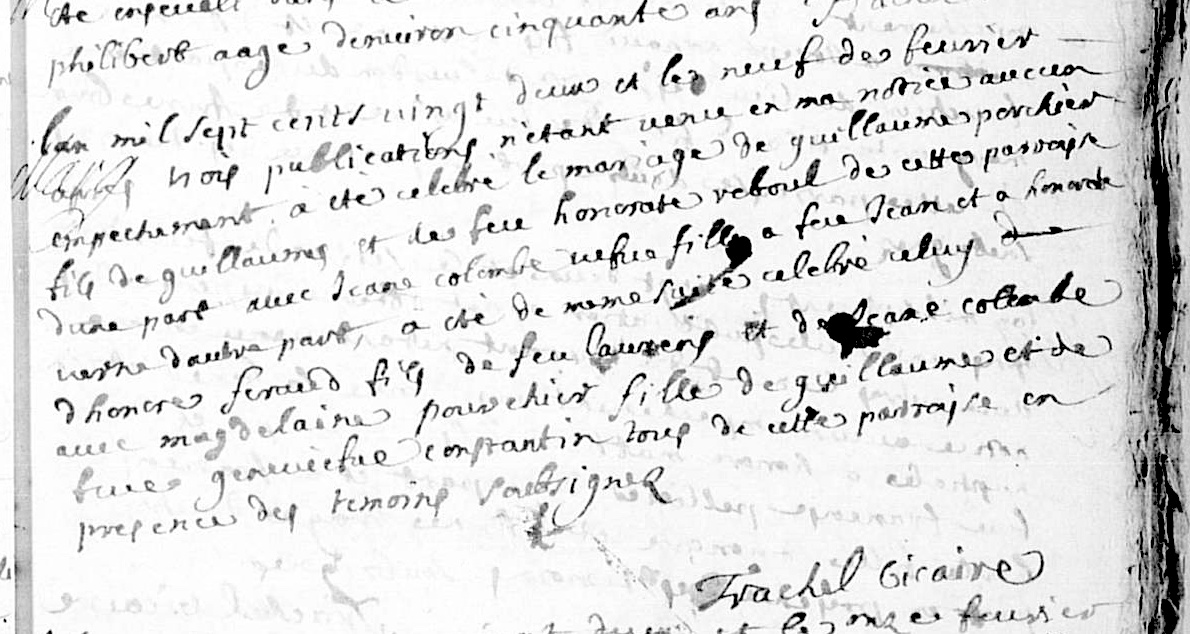 ete enseveli dans
philibert aage denviron cinquante ans
lan mil sept cents vingt deux et le neuf de feuvrier
apres trois publications n'etant venu en ma notice aucun
empechement a ete celebré le mariage de guillaume porchier
fils de guillaume et de feu honorate reboul de cette parroise
dune part avec Jeane colombe vefve fille a feu Jean et a honorade
verne dautre part, a eté de meme suite celebré celuy de
dhonore feraud fils de feu laurens et de Jeane colombe
avec magdelaine pourchier fille de guillaume et de
feue genevieve constantin tous de cette parroise en
presence des temoins soubsignez
Trachel vicaire
et le onze feuvrier